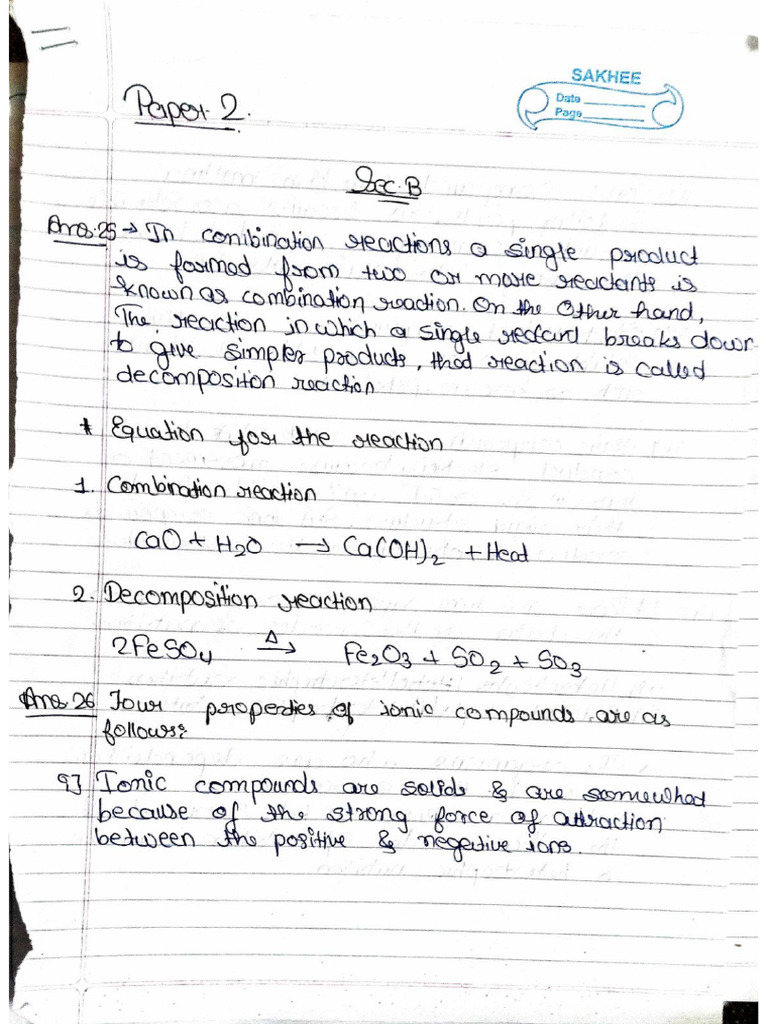 SAKHEE
Date
Page
Paper 2.
Sec. B
Ans. 25 → In conibination reactions a single product
is formed from two or more reactants is
known as combination reaction. On the Other hand,
The reaction in which a single rectard breaks down
to give simpler products, that reaction is called
decomposition reaction
* Equation for the reaction
1. Combination reaction
CaO + H₂O → Ca(OH)₂ + Heat
2. Decomposition reaction
2FeSO₄ Δ→ Fe₂O₃ + SO₂ + SO₃
Ans. 26 Four properties of ionic compounds are as
follows:
Ionic compounds are solids & are somewhat
because of the strong force of attraction
between the positive & negative ions.